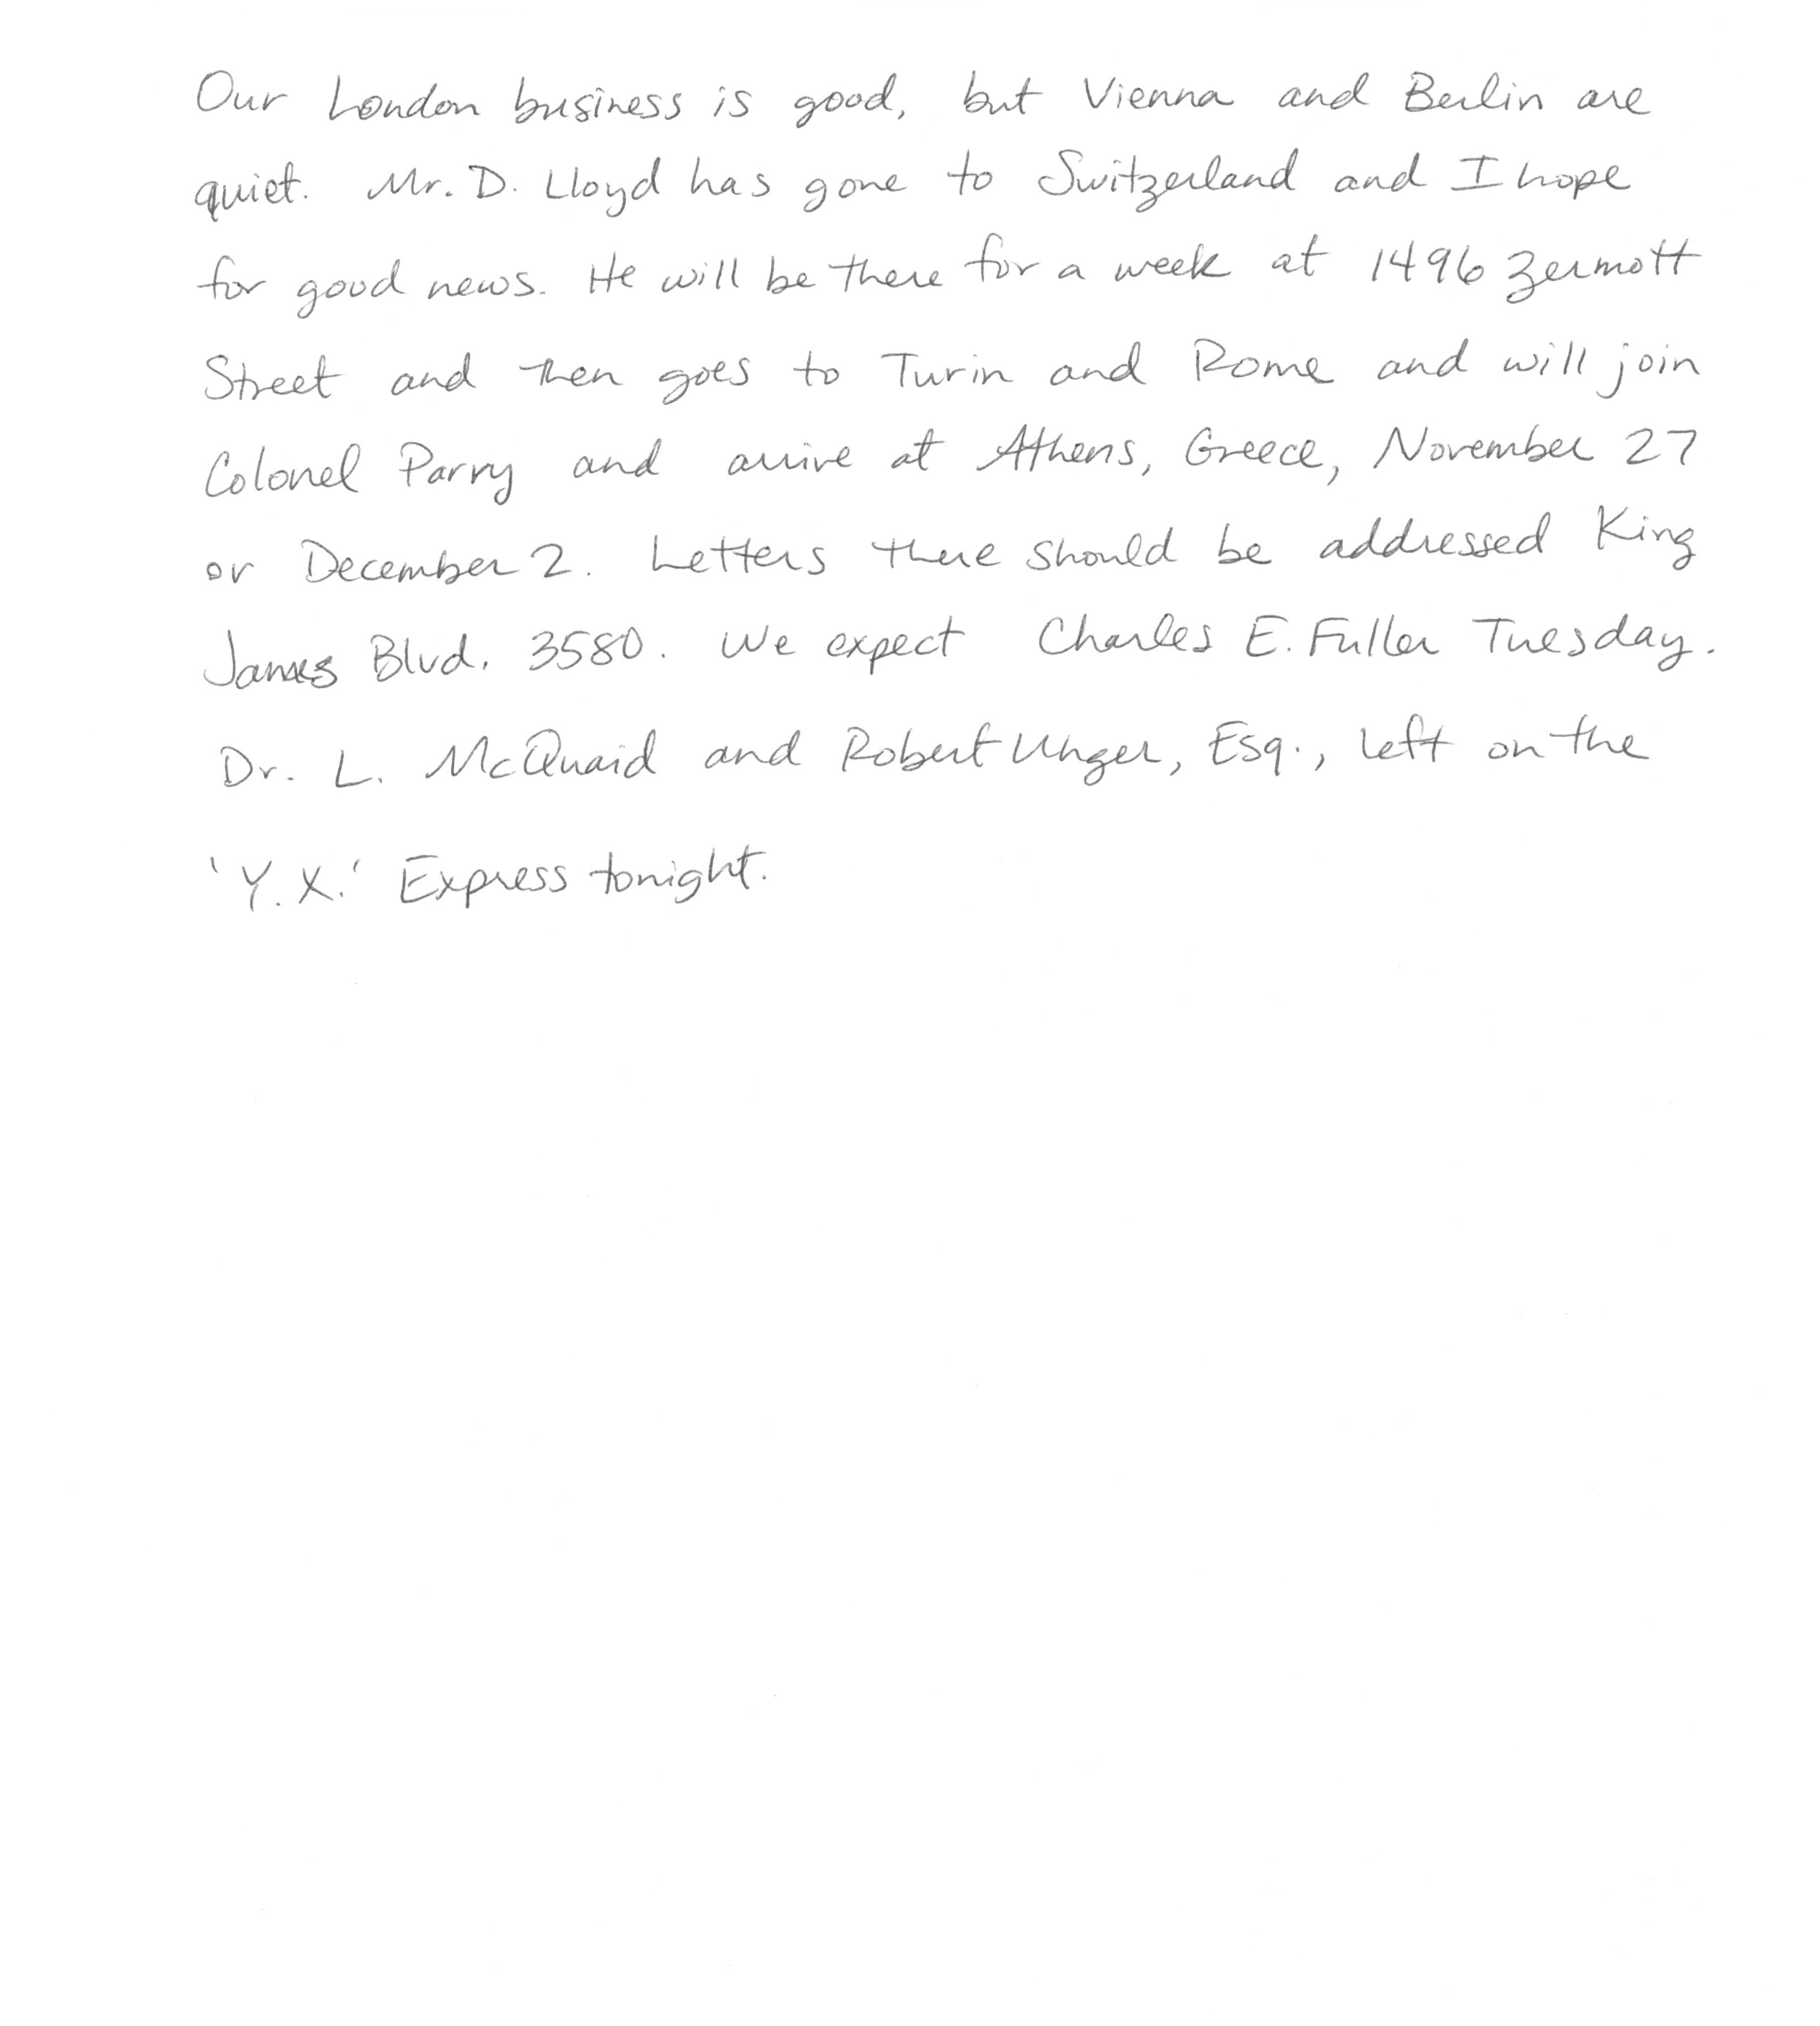 Our London business is good, but Vienna and Berlin are
quiet. Mr. D. Lloyd has gone to Switzerland and I hope
for good news. He will be there for a week at 1496 Zermott
Street and then goes to Turin and Rome and will join
Colonel Parry and arrive at Athens, Greece, November 27
or December 2. Letters there should be addressed King
James Blvd. 3580. We expect Charles E. Fuller Tuesday.
Dr. L. McQuaid and Robert Unger, Esq., left on the
'Y.X.' Express tonight.